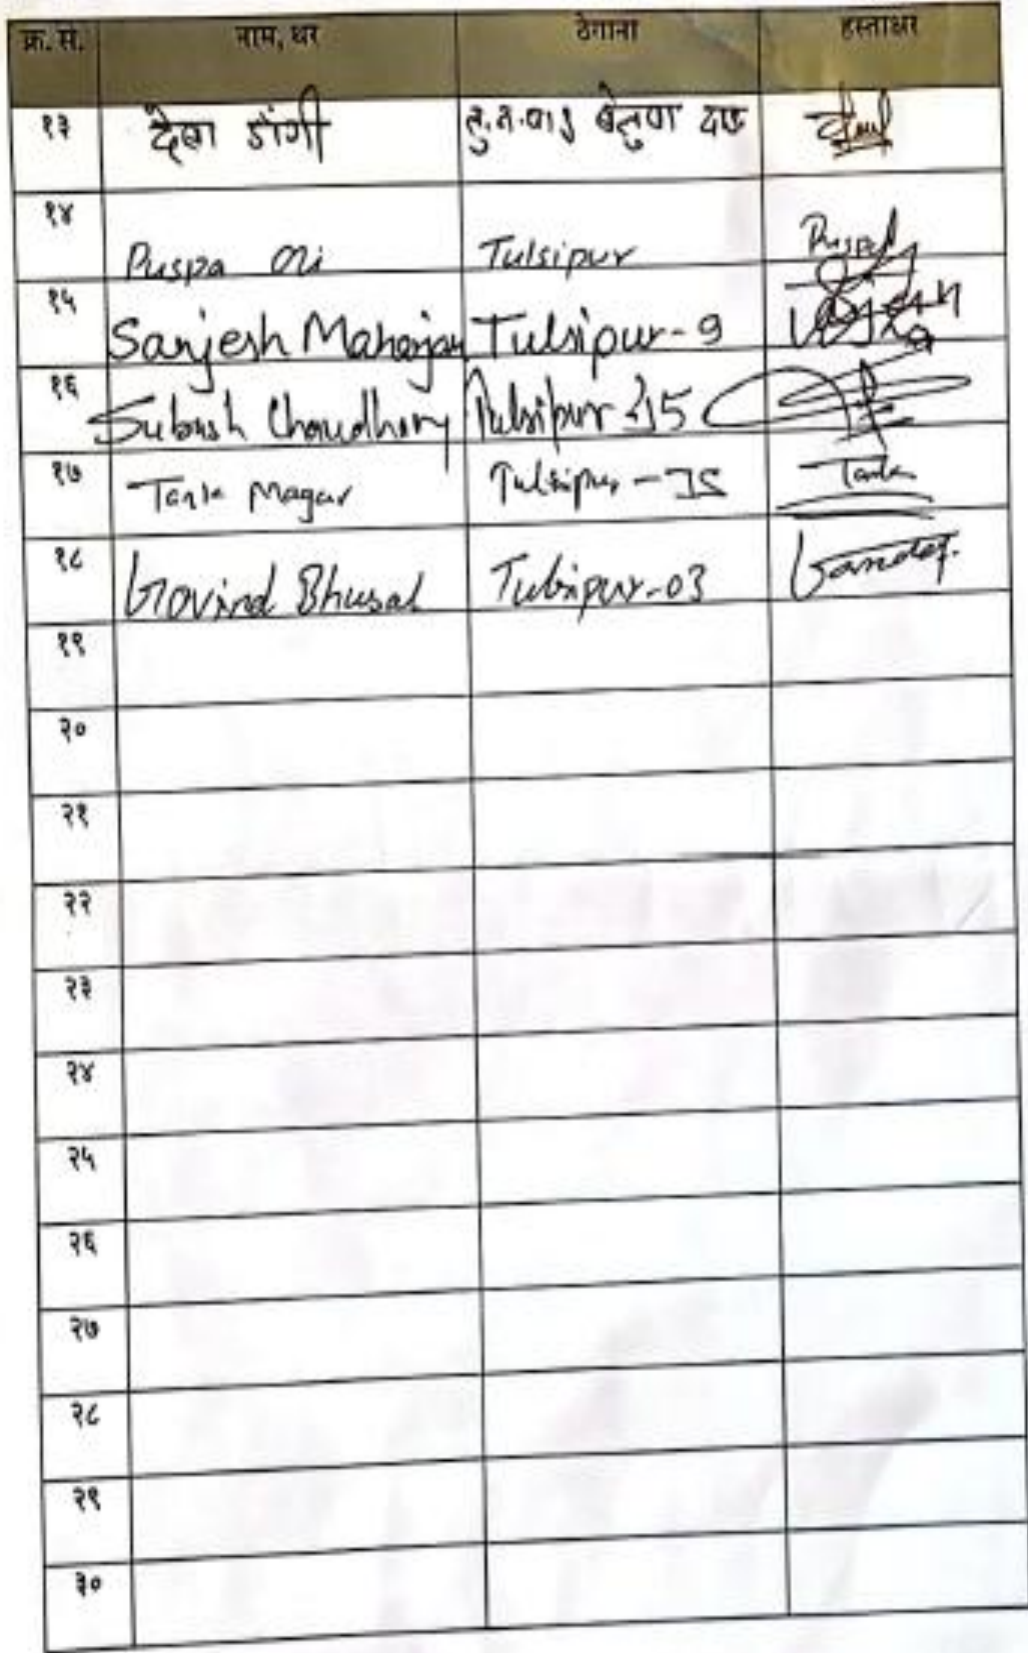 क्र. सं. नाम, थर ठेगाना हस्ताक्षर
१३ देवा डाँगी
१४ Puspa Oli Tulsipur Puspa
१५ Sanjesh Maharjan Tulsipur-9
१६ Subash Chaudhary Tulsipur 15
१७ Tank Magar Tulsipur-15 Tank
१८ Govind Bhusal Tulsipur-03
१९
२०
२१
२२
२३
२४
२५
२६
२७
२८
२९
३०